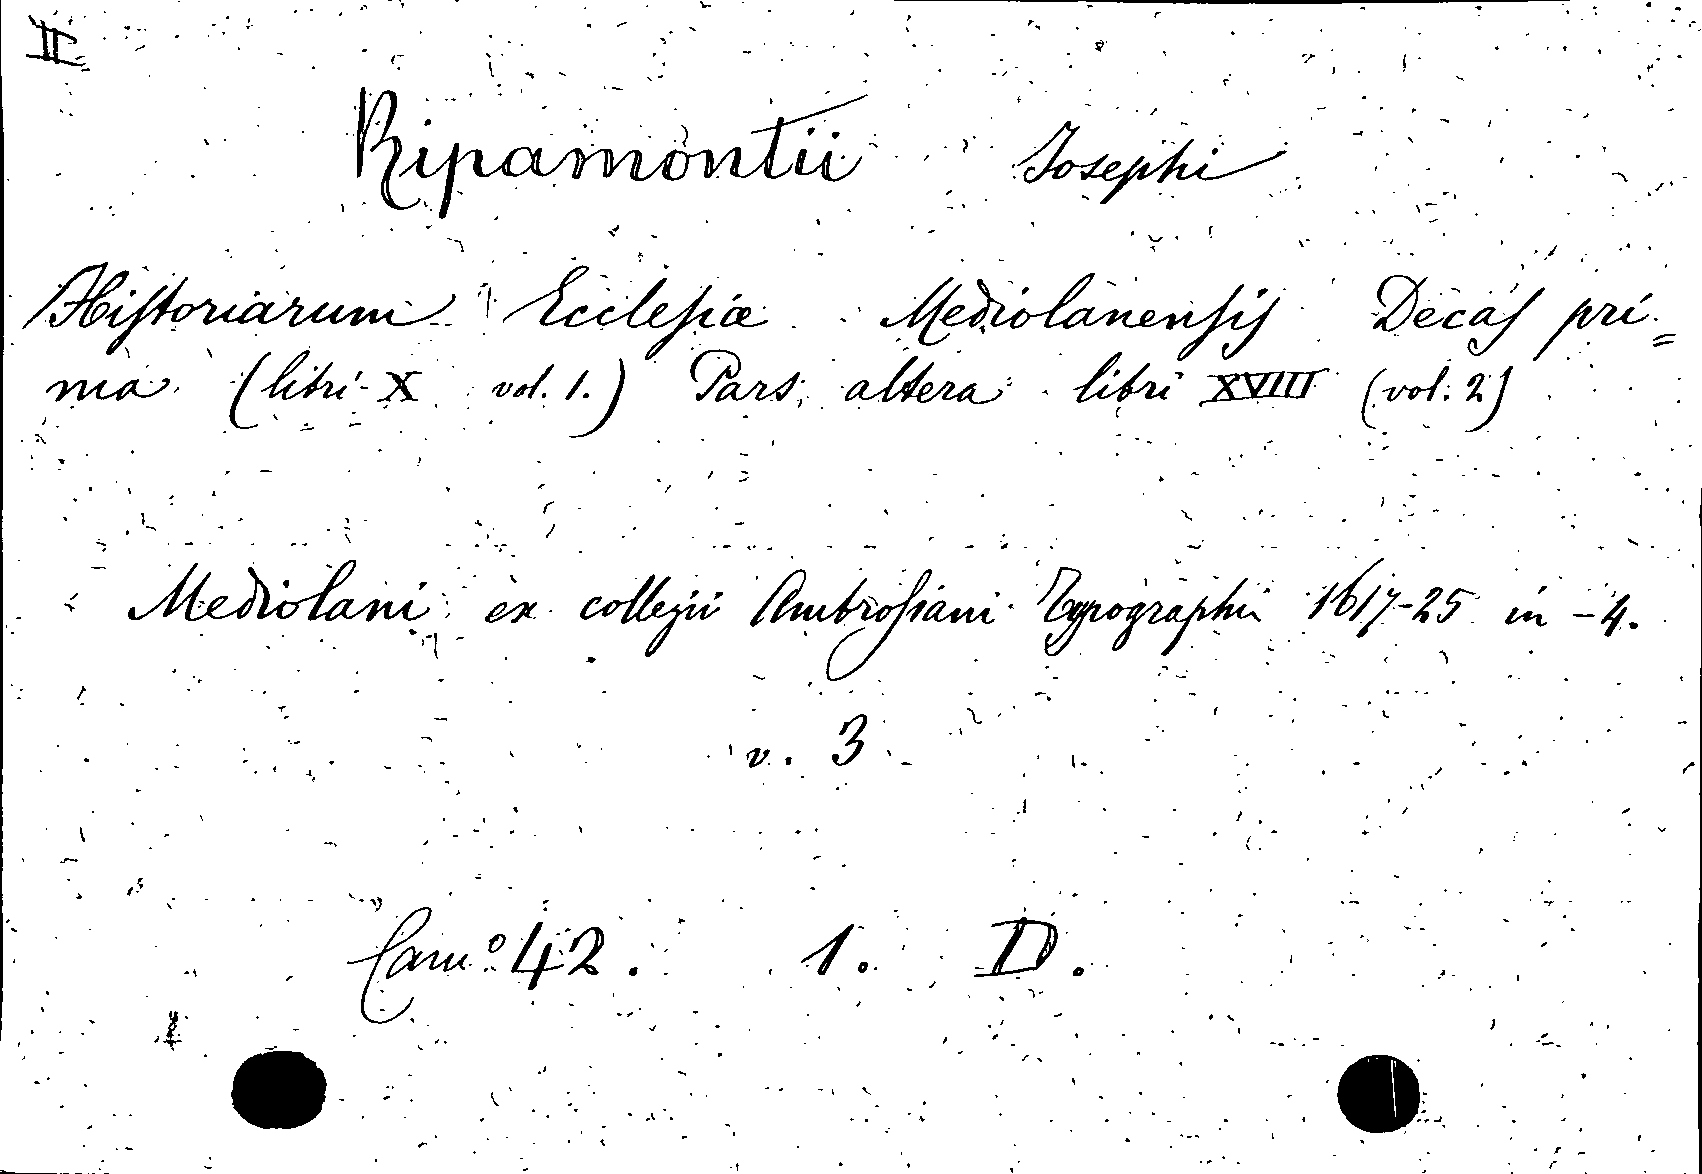 II
Ripamontii Josephi
Hiſtoriarum Eccleſiæ Mediolanenſiſ Decaſ pri=
ma (libri X vol. 1.) Pars altera libri XVIII (vol. 2)
Mediolani ex collegii Ambroſiani Typographii 1617-25 in -4.
v. 3
Camº 42. 1. D.